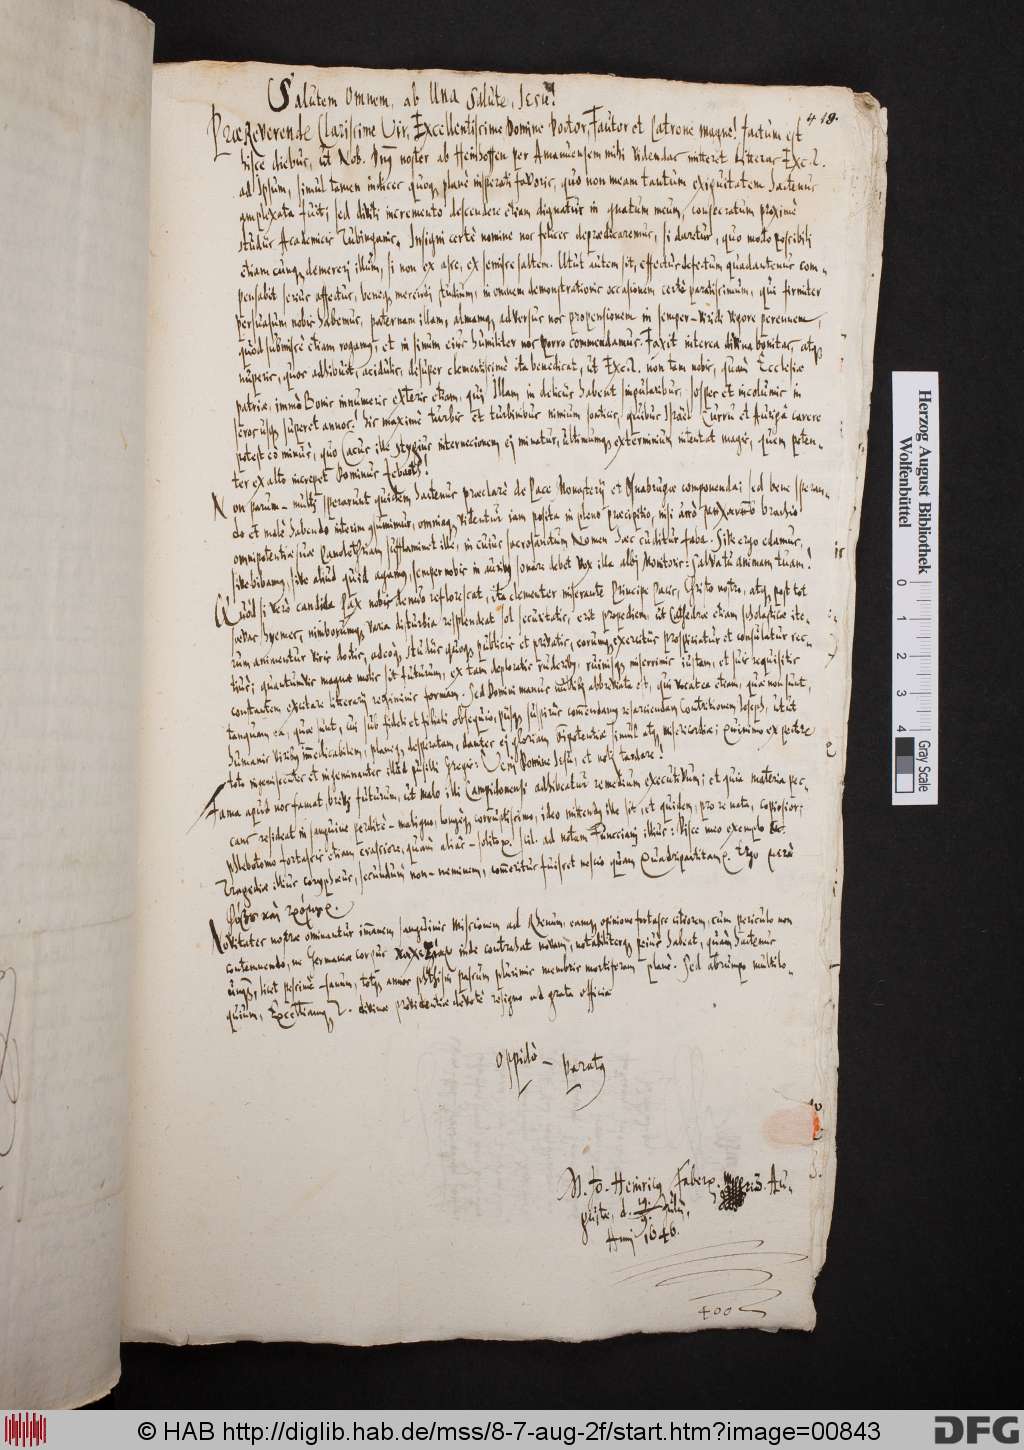 Salutem omnem, ab Una Salute, Jesu!
418.
PræReverende Clarissime Vir, Excellentissime Domine Doctor, Fautor et Patrone magne! factum est
hisce diebus, ut Nob. Dnus noster ab Heinhoffen per Amanuensem mihi videndas mitteret Litteras Excell.
ad Ipsum, simul tamen indices quoq; planè insperati favoris, quo non meam tantum exiguitatem hactenus
amplexata fuit; sed diviti incremento descendere etiam dignatur in gnatum meum, consecratum proximè
studiis Academicis Tubinganis. Insigni certè nomine nos felices deprædicaremus, si daretur, quo modo possibili
etiam cunq; demereri illum, si non ex asse, ex semisse saltem. Utut autem sit, effectus defectum quadantenus com-
pensabit serius affectus, beneq; merendi studium, in omnem demonstrationis occasionem certè paratissimum, qui firmiter
persuasum nobis habemus, paternam illam, almamq; adversus nos propensionem in semper-viridi vigore perennem,
quod submissè etiam rogamus, et in sinum eius humiliter nos porro commendamus. Faxit interea divina bonitas, atq;
nuperis, quas adhibuit, acidulis, desuper clementissimè ita benedicat, ut Excell. non tam nobis, quàm Ecclesiæ
patriæ, immò Bonis innumeris exteris etiam, qui Illam in deliciis habent singularibus, sospes et incolumis in
seros usq; superet annos! His maximè turbis et turbinibus nimium sonticis, quibus Israel Curru et Aurigâ carere
potest eò minus, quo Cacus ille Stygius internecionem ei minatur, ultimumq; exterminium intentat magis, quem poten-
ter ex alto increpet Dominus Zebaoth!
Non parum-multi sperarunt quidem hactenus præclarè de Pace Monasterii et Osnabrugæ componenda; sed bene speran-
do et malè habendo interim consumimur, omniaq; videntur iam posita in pleno præcipitio, nisi brachio
omnipotentiæ suæ sufflaminet ille, in cuius sacrosanctum Nomen hæc cuditur faba. Sive ergo edamus,
sive bibamus, sive aliud quid agamus, semper nobis in auribus sonare debet vox illa albi Monitoris: Salva tu animam tuam!
Quod si verò candida Pax nobis denuò reflorescat, ita clementer miserante Principe Pacis, Christo nostro, atq; post tot
sævas hyemes, nimborumq; varia disturbia resplendeat sol securitatis, erit propediem, ut Cathedræ etiam scholasticæ ite-
rum animentur viris doctis, adeoq; studiis quoq; publicis et privatis, eorumq; exercitiis prospiciatur et consulatur rec-
tius; quantumvis magnæ molis sit futurum, ex tam deploratis ruderibus, ruinisq; miserrimis iustam, et suis requisitis
constantem excitare literarij regiminis formam. Sed Domini manus nullibi abbreviata est, qui vocat ea etiam, quæ non sunt,
tanquam ea, quæ sint, cui sub fideli et filiali obsequio, piisq; suspiriis commendamus resarciendam Contritionem Joseph, utut
humanis viribus immedicabilem, planeq; desperatam, dantes ei gloriam Omnipotentiæ simul atq; misericordiæ; quinimo ex pectore
toto ingemiscentes et ingeminantes illud pusilli Gregis: Veni Domine Jesu, et noli tardare!
Fama apud nos famat, brevi futurum, ut malo illi Campidonensi adhibeatur remedium executivum; et quia materia pec-
cans resideat in sanguine perditè-maligno, longeq; corruptissimo, ideo mittendus ille sit, et quidem, pro re nata, copiosior;
phlebotomo fortassis etiam crassiore, quàm aliàs-solito. scil. ad notam illius: Disce meo exemplo &c.
Tragediæ illius coryphæus, secundum non-neminem, comeritus fuisset nescio quam Quadripartitam. Ergo
Novitates nostræ ominantur immanem sanguinis missionem ad Rhenum, eamq; opinione fortasse citeorem, cum periculo non
contemnendo, ne Germaniæ corpus inde contrahat novam, notabiliterq; peius habeat, quàm hactenus
unqua, licet pessimè-sanum, totq; annos phthisin passum plurimis membris mortiferam planè. Sed abrumpo multilo-
quium, Excellentiamq; T. divinæ providentiæ devotè resigno ad grata officia
Oppidò- Paratus
M. Jo. Heinricus Faber. Au-
gustæ, d. 19./9. Julii,
Anni 1646.
400
Herzog August Bibliothek
Wolfenbüttel
0 1 2 3 4
Gray Scale
© HAB http://diglib.hab.de/mss/8-7-aug-2f/start.htm?image=00843
DFG